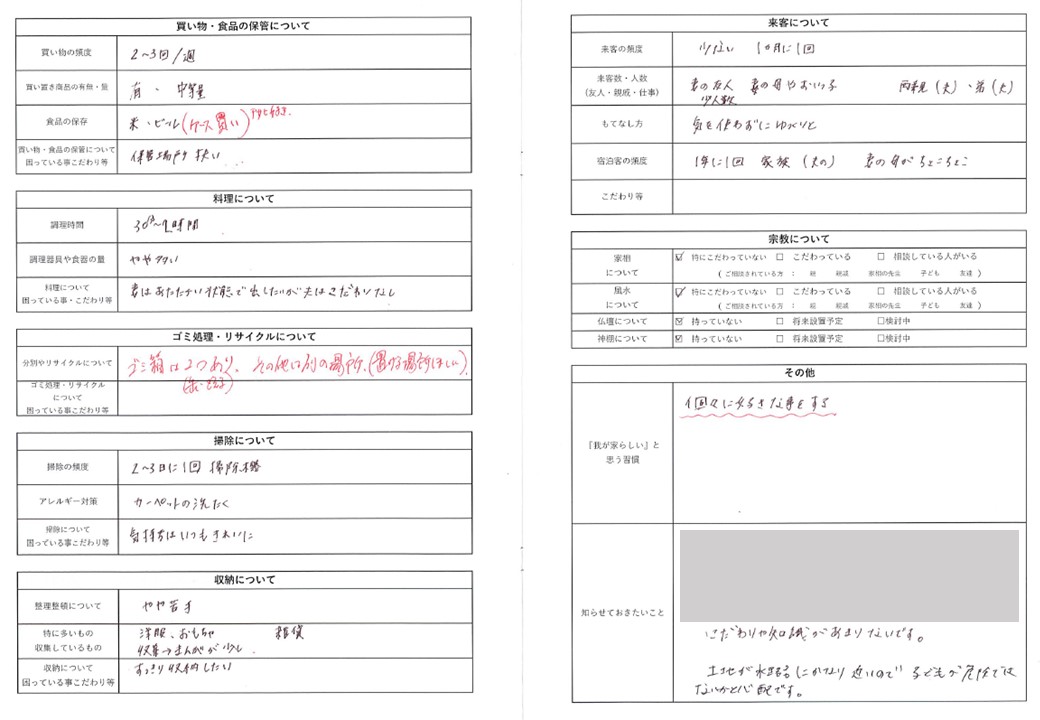 買い物・食品の保管について
買い物の頻度 2~3回/週
買い置き商品の有無・量 有、中等量
食品の保存 米・ビール(ケース買い)
買い物・食品の保管について
困っている事こだわり等 保管場所 狭い
料理について
調理時間 30分~1時間
調理器具や食器の量 やや多い
料理について
困っている事・こだわり等 妻はあたたかい状態で出したいが夫はこだわりなし
ゴミ処理・リサイクルについて
分別やリサイクルについて ゴミ箱は2つあり、その他は別の場所。(置ける場所ほしい)
ゴミ処理・リサイクル
について
困っている事こだわり等
掃除について
掃除の頻度 2~3日に1回 掃除機
アレルギー対策 カーペットの洗たく
掃除について
困っている事こだわり等 気持ちはいつもきれいに
収納について
整理整頓について やや苦手
特に多いもの 洋服、おもちゃ 雑貨
収集しているもの 収集→まんがが少し
収納について
困っている事こだわり等 すっきり収納したい
来客について
来客の頻度 少ない 1ヵ月に1回
来客数・人数 妻の友人 妻の母やおいっ子 両親(夫)、弟(夫)
(友人・親戚・仕事) 少人数
もてなし方 気を使わずにゆっくりと
宿泊客の頻度 1年に1回 家族(夫の) 妻の母がちょこちょこ
こだわり等
宗教について
家相 ☑ 特にこだわっていない □ こだわっている □ 相談している人がいる
について (ご相談されている方 : 家相の先生 子ども 友達)
風水 ☑ 特にこだわっていない □ こだわっている □ 相談している人がいる
について (ご相談されている方 : 家相の先生 子ども 友達)
仏壇について ☑ 持っていない □ 将来設置予定 □検討中
神棚について ☑ 持っていない □ 将来設置予定 □検討中
その他
『我が家らしい』と
思う習慣 個々に好きな事をする
知らせておきたいこと
こだわりや知識があまりないです。
土地が水路にかなり近いので子どもが危険では
ないかと心配です。